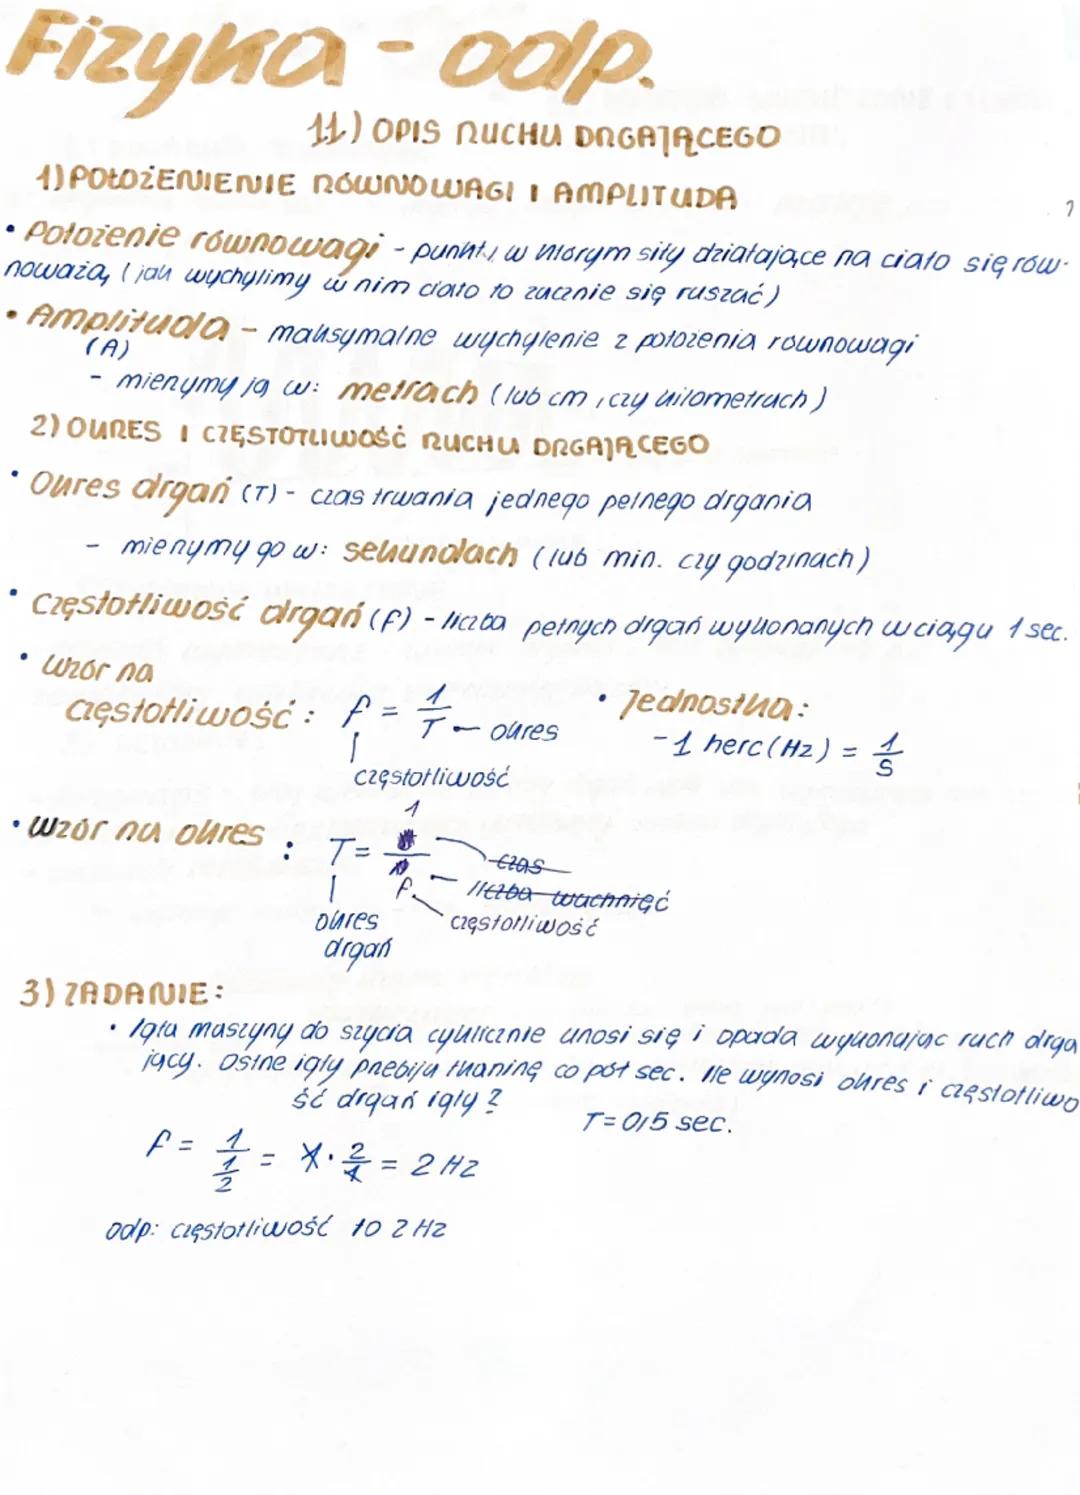 Fizyka - odp.
11.) OPIS RUCHU DRGAJĄCEGO
1) POŁOŻENIENIE RÓWNOWAGI I AMPLITUDA
• Położenie równowagi - punkt, w którym siły działające na ciało się rów-
noważą (jak wychylimy w nim ciało to zacznie się ruszać)
• Amplituda - maksymalne wychylenie z położenia równowagi
(A)
- mierzymy ją w: metrach (lub cm, czy kilometrach)
2) OKRES I CZĘSTOTLIWOŚĆ RUCHU DRGAJĄCEGO
• Okres drgań (T) - czas trwania jednego pełnego drgania
- mierzymy go w: sekundach (lub min. czy godzinach)
• Częstotliwość drgań (f) - liczba pełnych drgań wykonanych w ciągu 1 sec.
• Wzór na
częstotliwość: f = 1/T - okres
częstotliwość
• Jednostka:
- 1 herc (Hz) = 1/s
• Wzór na okres: T = 1/f
czas
liczba wachnięć
częstotliwość
okres
drgań
3) ZADANIE:
• Igła maszyny do szycia cyklicznie unosi się i opada wykonując ruch drga
jący. Ostrze igły przebija tkaninę co pół sec. Ile wynosi okres i częstotliwo
ść drgań igły?
T = 0,5 sec.
f = 1/(1/2) = 1 · 2/1 = 2 Hz
odp: częstotliwość to 2 Hz